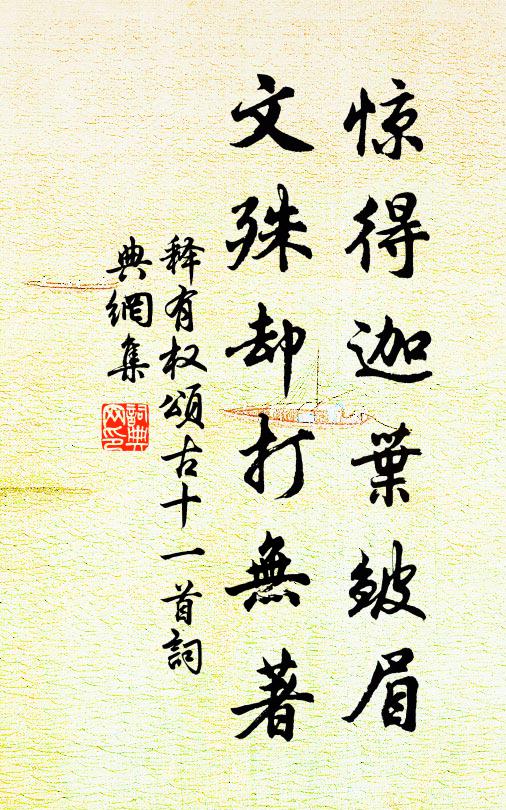 惊得迦葉皴眉
文殊却打無著
释有权頌古十一首詞
典網集
詞典
网印